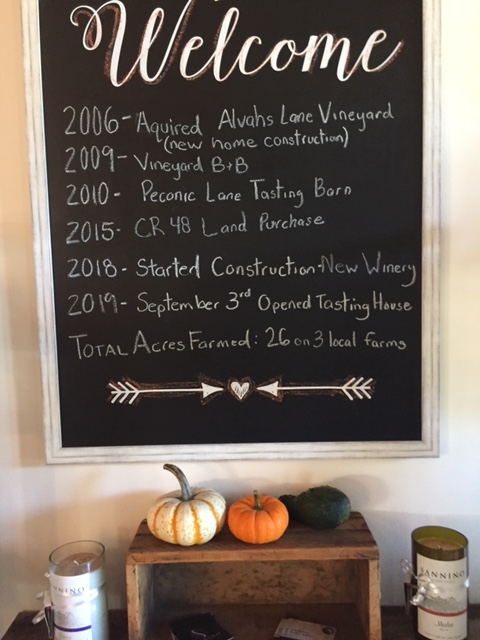 Welcome
2006- Aquired Alvahs Lane Vineyard
(new home construction)
2009- Vineyard B+B
2010- Peconic Lane Tasting Barn
2015- CR 48 Land Purchase
2018- Started Construction-New Winery
2019- September 3rd Opened Tasting House
TOTAL Acres Farmed: 26 on 3 local farms
SANNINO
Merlot